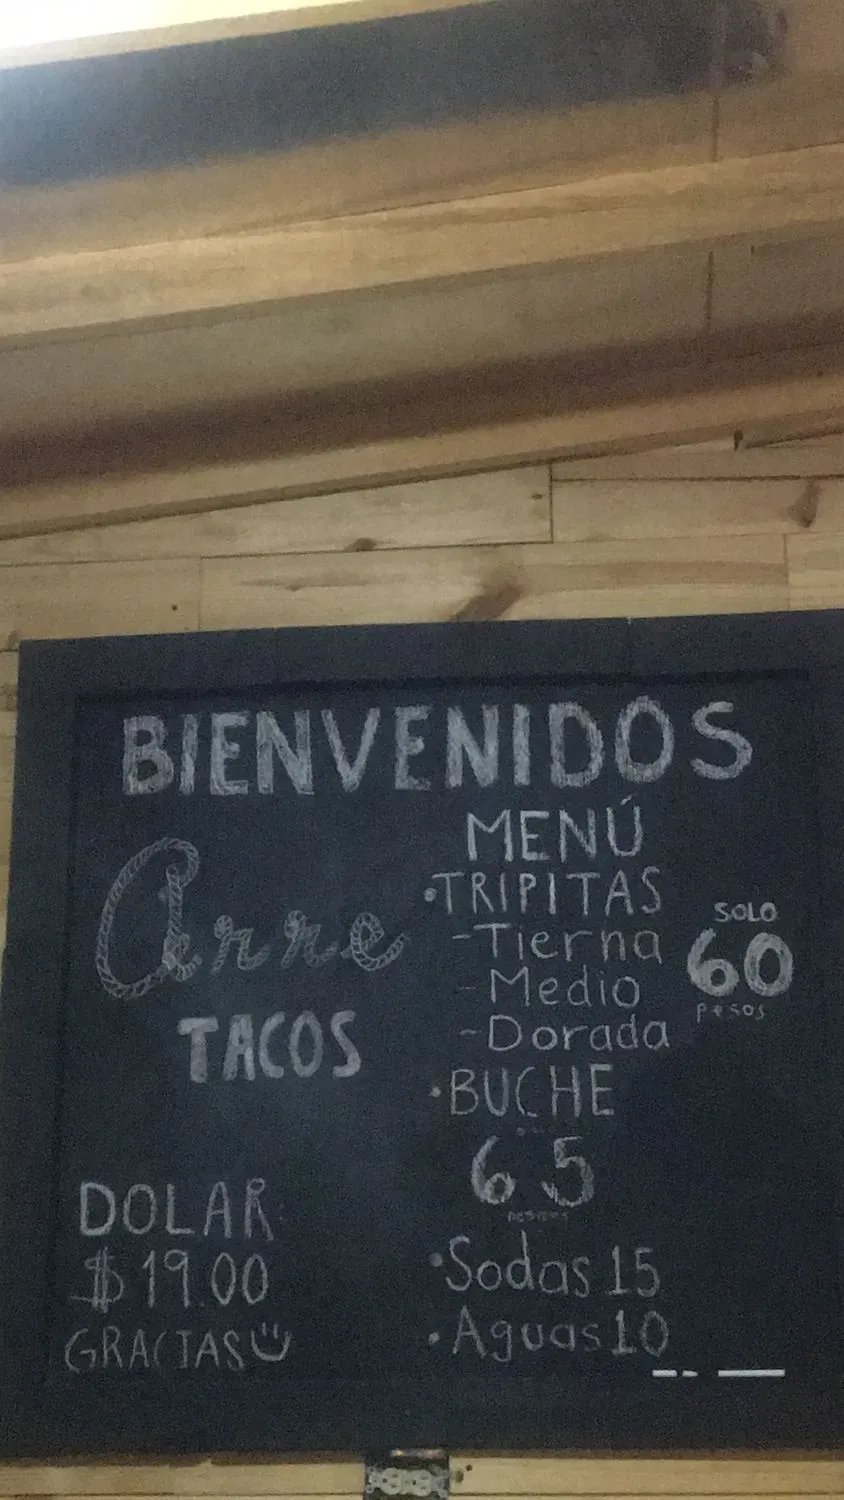 BIENVENIDOS
Arre
TACOS
MENÚ
•TRIPITAS
-Tierna
-Medio
-Dorada
SOLO
60
pesos
•BUCHE
65
•Sodas 15
•Aguas 10
DOLAR
$19.00
GRACIAS